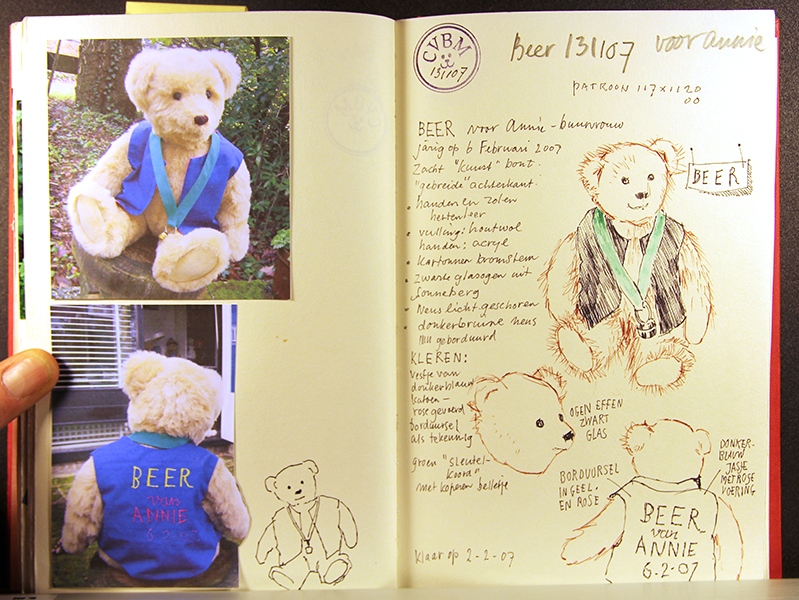 BEER
van
ANNIE
6.2.07
CVBM
131107
Beer 131107 voor annie
PATROON 117X1120
00
BEER voor Annie - buurvrouw
jarig op 6 Februari 2007
Zacht "kunst" bont.
"gebreide" achterkant.
• handen en zolen
hertenleer
• vulling: houtwol
handen: acryl
• Kartonnen bromstem
• zwarte glasogen uit
Sonneberg
- Neus licht geschoren
donkerbruine neus
geborduurd
KLEREN:
vestje van
donkerblauw
katoen -
rose gevoerd
borduursel
als tekening
groen "sleutel-
koord"
met koperen belletje
klaar op 2-2-07
BEER
OGEN EFFEN
ZWART
GLAS
BORDUURSEL
IN GEEL.
EN ROSE
DONKER-
BLAUW
JASJE
MET ROSE
VOERING
BEER
van
ANNIE
6.2.07